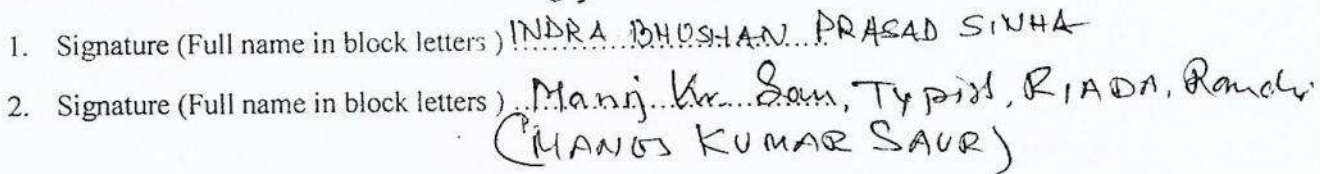 1. Signature (Full name in block letters ) INDRA BHUSHAN PRASAD SINHA
2. Signature (Full name in block letters ) Manoj Kr. Typist, RIADA, Ranchi
(MANOJ KUMAR SAUR)